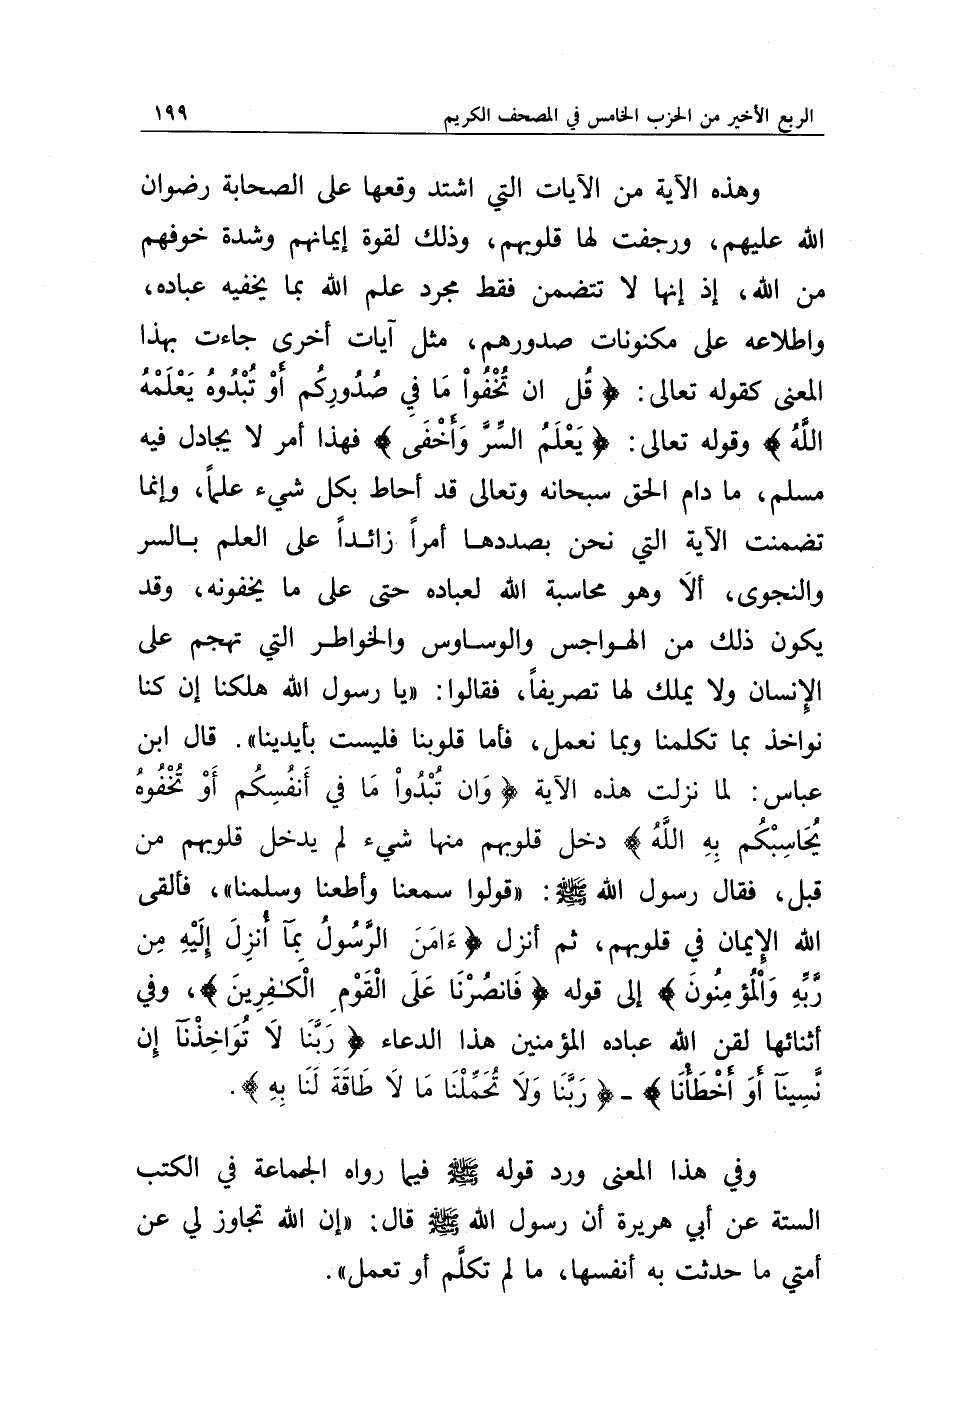 الربع الأخير من الحزب الخامس في المصحف الكريم ١٩٩
وهذه الآية من الآيات التي اشتد وقعها على الصحابة رضوان
الله عليهم، ورجفت لها قلوبهم، وذلك لقوة إيمانهم وشدة خوفهم
من الله، إذ إنها لا تتضمن فقط مجرد علم الله بما يخفيه عباده،
واطلاعه على مكنونات صدورهم، مثل آيات أخرى جاءت بهذا
المعنى كقوله تعالى: ﴿ قُل ان تُخْفُواْ مَا فِي صُدُورِكُم أَوْ تُبْدُوهُ يَعْلَمْهُ
اللَّهُ ﴾ وقوله تعالى: ﴿ يَعْلَمُ السِّرَّ وَأَخْفَى ﴾ فهذا أمر لا يجادل فيه
مسلم، ما دام الحق سبحانه وتعالى قد أحاط بكل شيء علماً، وإنما
تضمنت الآية التي نحن بصددها أمراً زائداً على العلم بالسر
والنجوى، ألَا وهو محاسبة الله لعباده حتى على ما يخفونه، وقد
يكون ذلك من الهواجس والوساوس والخواطر التي تهجم على
الإنسان ولا يملك لها تصريفاً، فقالوا: «يا رسول الله هلكنا إن كنا
نواخذ بما تكلمنا وبما نعمل، فأما قلوبنا فليست بأيدينا». قال ابن
عباس: لما نزلت هذه الآية ﴿ وَان تُبْدُواْ مَا فِي أَنفُسِكُم أَوْ تُخْفُوهُ
يُحَاسِبْكُم بِهِ اللَّهُ ﴾ دخل قلوبهم منها شيء لم يدخل قلوبهم من
قبل، فقال رسول الله ﷺ: «قولوا سمعنا وأطعنا وسلمنا»، فألقى
الله الإيمان في قلوبهم، ثم أنزل ﴿ ءَامَنَ الرَّسُولُ بِمَآ أُنزِلَ إِلَيْهِ مِن
رَّبِّهِ وَالْمُؤمِنُونَ ﴾ إلى قوله ﴿ فَانصُرْنَا عَلَى الْقَوْمِ الْكَـٰفِرِينَ ﴾، وفي
أثنائها لقن الله عباده المؤمنين هذا الدعاء ﴿ رَبَّنَا لَا تُوَاخِذْنَآ إِن
نَّسِينَآ أَوَ أَخْطَأْنَا ﴾ - ﴿ رَبَّنَا وَلَا تُحَمِّلْنَا مَا لَا طَاقَةَ لَنَا بِهِ ﴾.
وفي هذا المعنى ورد قوله ﷺ فيما رواه الجماعة في الكتب
الستة عن أبي هريرة أن رسول الله ﷺ قال: «إن الله تجاوز لي عن
أمتي ما حدثت به أنفسها، ما لم تكلَّم أو تعمل».